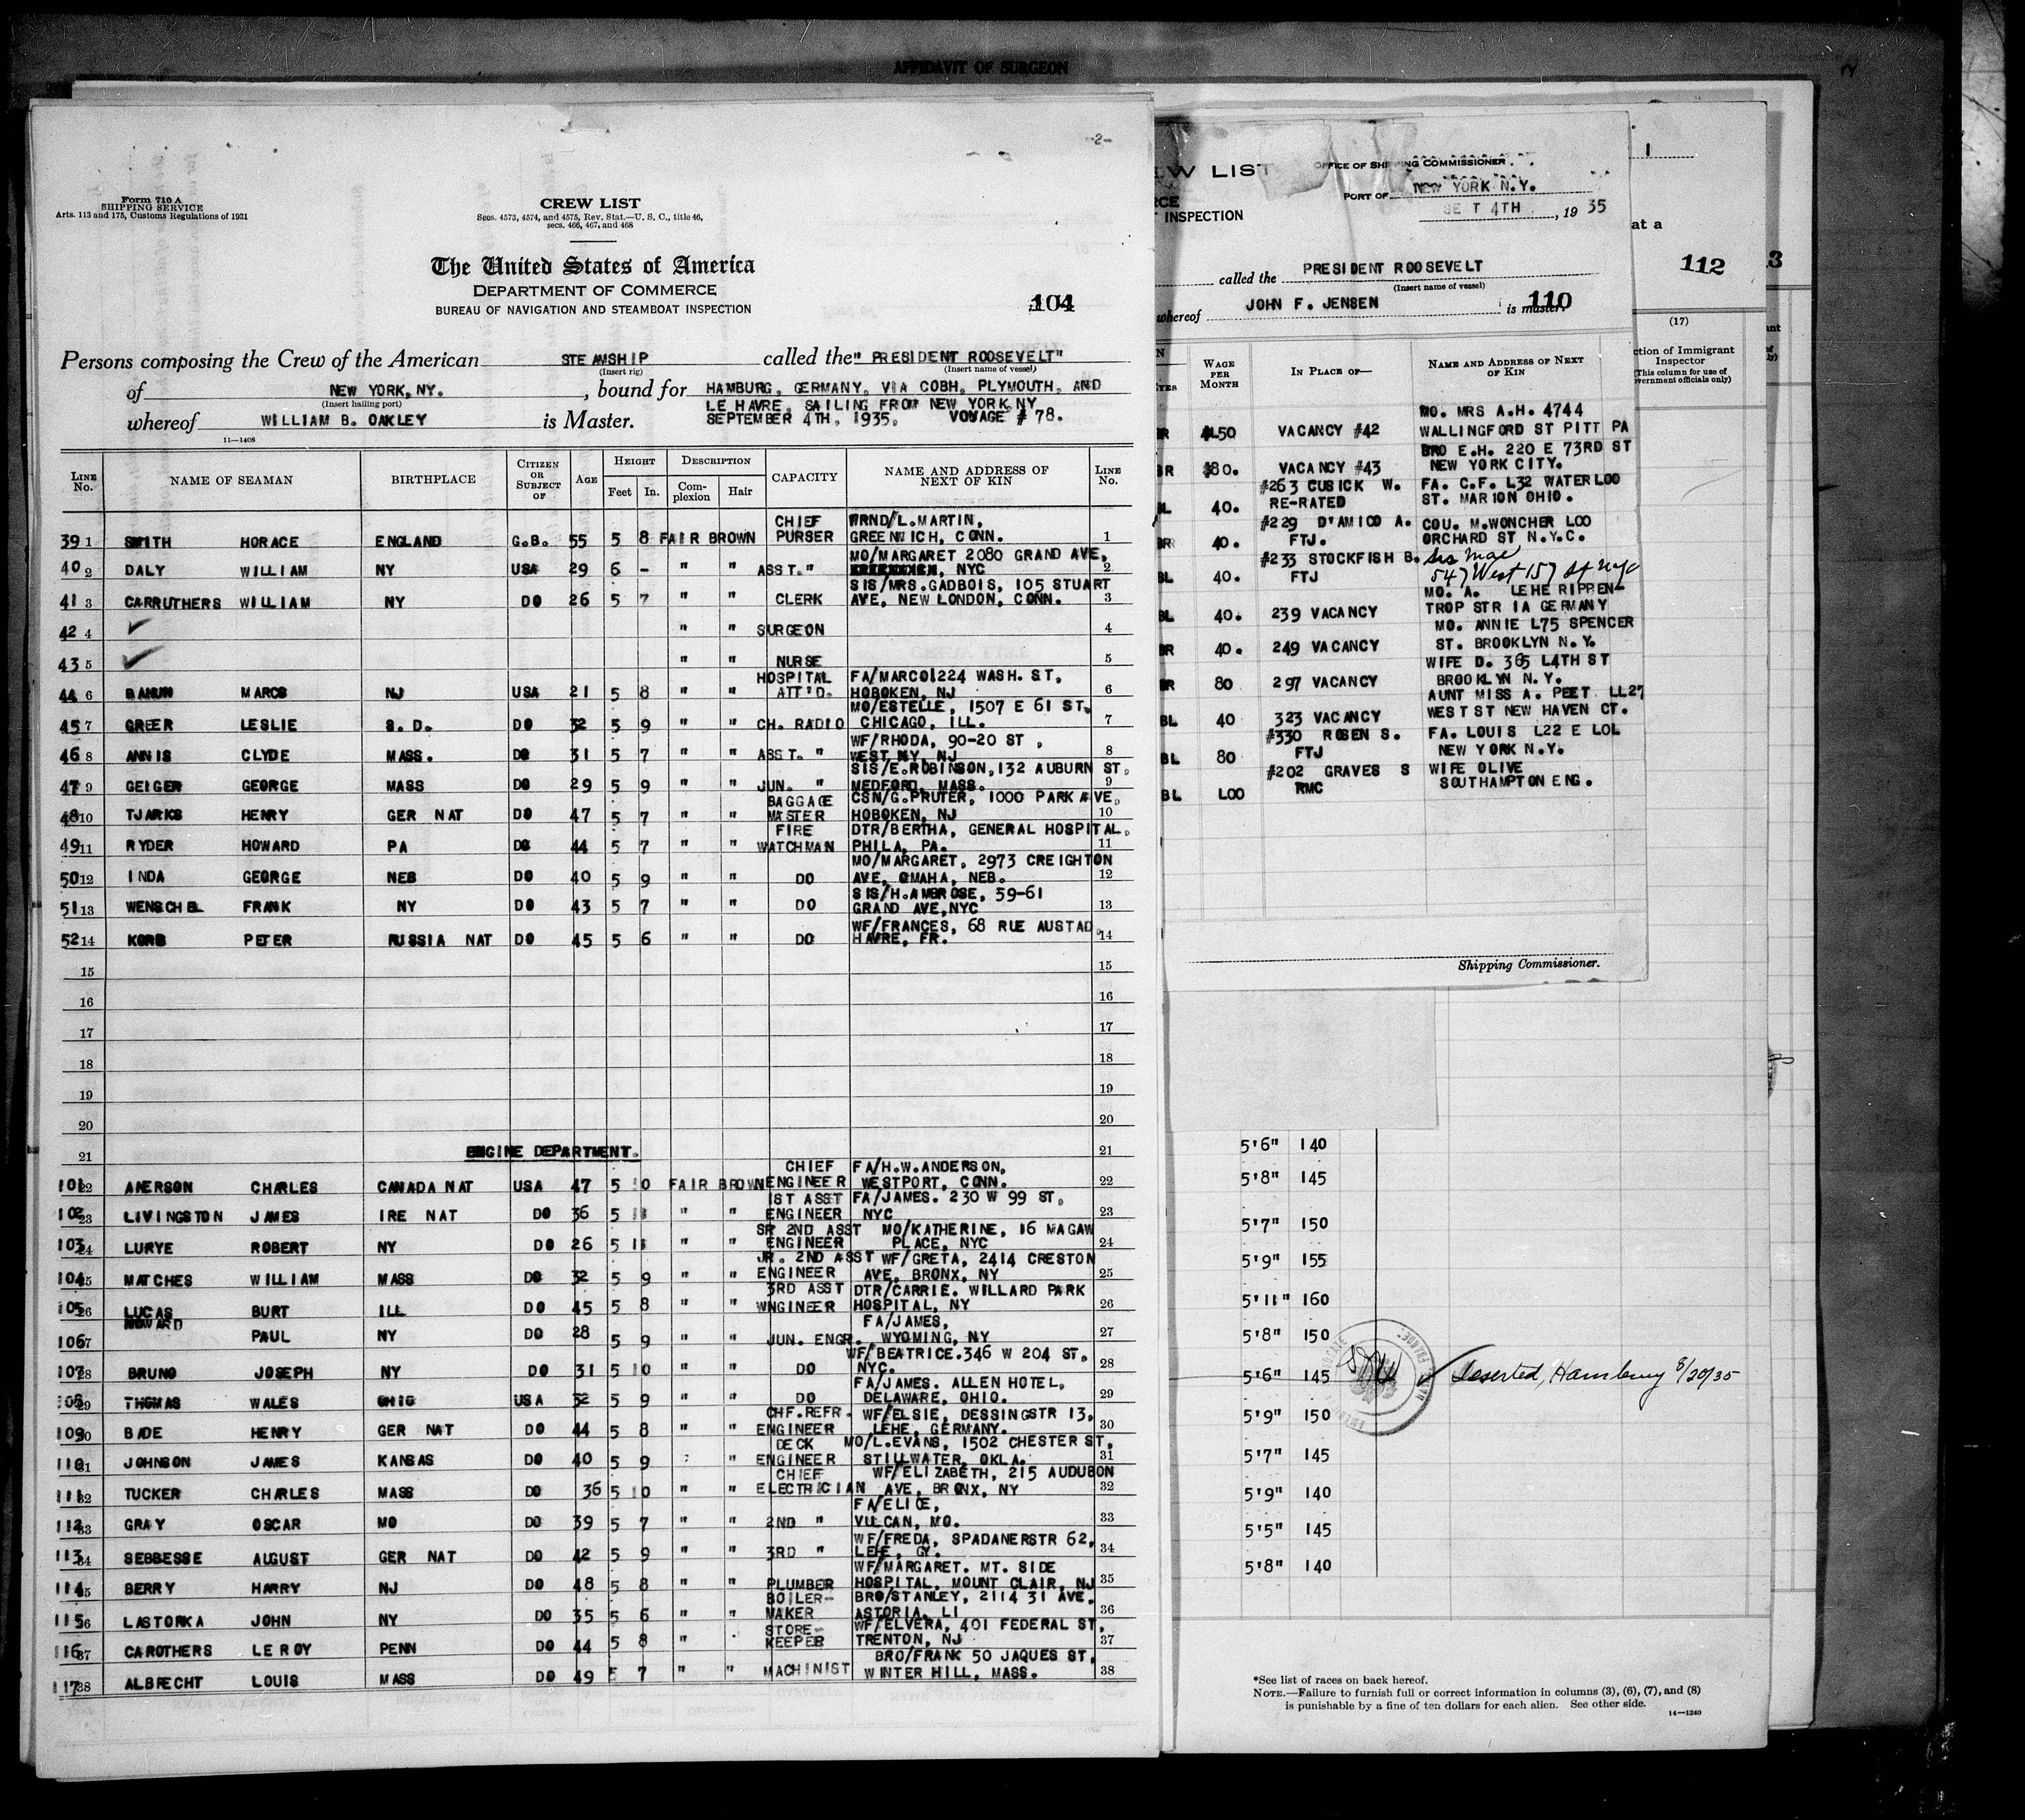 AFFIDAVIT OF SURGEON
-2-
Form 710 A
SHIPPING SERVICE
Arts. 113 and 175, Customs Regulations of 1931
CREW LIST
Secs. 4573, 4574, and 4575, Rev. Stat.—U. S. C., title 46,
secs. 466, 467, and 468
The United States of America
DEPARTMENT OF COMMERCE
BUREAU OF NAVIGATION AND STEAMBOAT INSPECTION
104
Persons composing the Crew of the American STEAMSHIP called the "PRESIDENT ROOSEVELT"
(Insert rig) (Insert name of vessel)
of NEW YORK, NY. , bound for HAMBURG, GERMANY, VIA COBH, PLYMOUTH, AND
(Insert hailing port) LE HAVRE, SAILING FROM NEW YORK, NY
whereof WILLIAM B. OAKLEY is Master. SEPTEMBER 4TH, 1935. VOYAGE # 78.
11—1408
LINE No. NAME OF SEAMAN BIRTHPLACE CITIZEN OR SUBJECT OF AGE HEIGHT Feet In. DESCRIPTION Complexion Hair CAPACITY NAME AND ADDRESS OF NEXT OF KIN LINE No.
CHIEF FRND/L.MARTIN,
39 1 SMITH HORACE ENGLAND G.B. 55 5 8 FAIR BROWN PURSER GREENWICH, CONN. 1
MO/MARGARET 2080 GRAND AVE,
40 2 DALY WILLIAM NY USA 29 6 - " " ASST." , NYC 2
SIS/MRS.GADBOIS, 105 STUART
41 3 CARRUTHERS WILLIAM NY DO 26 5 7 " " CLERK AVE, NEW LONDON, CONN. 3
42 4 ✓ " " SURGEON 4
43 5 ✓ " " NURSE 5
HOSPITAL FA/MARCO1224 WASH. ST,
44 6 MARCS NJ USA 21 5 8 " " ATT'D. HOBOKEN, NJ 6
MO/ESTELLE, 1507 E 61 ST,
45 7 GREER LESLIE S. D. DO 32 5 9 " " CH. RADIO CHICAGO, ILL. 7
WF/RHODA, 90-20 ST ,
46 8 ANNIS CLYDE MASS. DO 31 5 7 " " ASST. " WEST NY, NJ 8
SIS/E.ROBINSON, 132 AUBURN ST,
47 9 GEIGER GEORGE MASS DO 29 5 9 " " JUN. " MEDFORD, MASS. 9
BAGGAGE CSN/G.PRUTER, 1000 PARK AVE,
48 10 TJARKS HENRY GER NAT DO 47 5 7 " " MASTER HOBOKEN, NJ 10
FIRE DTR/BERTHA, GENERAL HOSPITAL,
49 11 RYDER HOWARD PA DO 44 5 7 " " WATCHMAN PHILA, PA. 11
MO/MARGARET, 2973 CREIGHTON
50 12 INDA GEORGE NEB DO 40 5 9 " " DO AVE, OMAHA, NEB. 12
SIS/H.AMBROSE, 59-61
51 13 WENSCHEL FRANK NY DO 43 5 7 " " DO GRAND AVE,NYC 13
WF/FRANCES, 68 RUE AUSTAD,
52 14 KORB PETER RUSSIA NAT DO 45 5 6 " " DO HAVRE, FR. 14
15 15
16 16
17 17
18 18
19 19
20 20
21 ENGINE DEPARTMENT. 21
CHIEF FA/H.W.ANDERSON,
101 22 ANERSON CHARLES CANADA NAT USA 47 5 10 FAIR BROWN ENGINEER WESTPORT, CONN. 22
1ST ASST FA/JAMES. 230 W 99 ST,
102 23 LIVINGSTON JAMES IRE NAT DO 36 5 11 " " ENGINEER NYC 23
SR 2ND ASST MO/KATHERINE, 16 MAGAW
103 24 LURYE ROBERT NY DO 26 5 11 " " ENGINEER PLACE, NYC 24
JR. 2ND ASST WF/GRETA, 2414 CRESTON
104 25 MATCHES WILLIAM MASS DO 32 5 9 " " ENGINEER AVE, BRONX, NY 25
3RD ASST DTR/CARRIE. WILLARD PARK
105 26 LUCAS BURT ILL DO 45 5 8 " " WNGINEER HOSPITAL, NY 26
HOWARD FA/JAMES,
106 27 PAUL NY DO 28 5 9 " " JUN. ENGR. WYOMING, NY 27
WF/BEATRICE.346 W 204 ST,
107 28 BRUNO JOSEPH NY DO 31 5 10 " " DO NYC. 28
FA/JAMES. ALLEN HOTEL,
108 29 THOMAS WALES OHIO USA 32 5 9 " " DO DELAWARE, OHIO. 29
CHF.REFR. WF/ELSIE, DESSINGSTR 13,
109 30 BADE HENRY GER NAT DO 44 5 8 " " ENGINEER LEHE, GERMANY. 30
DECK MO/L.EVANS, 1502 CHESTER ST,
110 31 JOHNSON JAMES KANSAS DO 40 5 9 : " ENGINEER STILLWATER, OKLA. 31
CHIEF WF/ELIZABETH, 215 AUDUBON
111 32 TUCKER CHARLES MASS DO 36 5 10 " " ELECTRICIAN AVE, BRONX, NY 32
FA/ELICE,
112 33 GRAY OSCAR MO DO 39 5 7 " " 2ND " VULCAN, MO. 33
WF/FREDA, SPADANERSTR 62,
113 34 SEBBESSE AUGUST GER NAT DO 42 5 9 " " 3RD " LEHE, GY. 34
WF/MARGARET. MT. SIDE
114 35 BERRY HARRY NJ DO 48 5 8 " " PLUMBER HOSPITAL, MOUNT CLAIR, NJ 35
BOILER- BRO/STANLEY, 2114 31 AVE,
115 36 LASTORKA JOHN NY DO 35 5 6 " " MAKER ASTORIA, LI 36
STORE- WF/ELVERA, 401 FEDERAL ST,
116 37 CAROTHERS LEROY PENN DO 44 5 8 " KEEPER TRENTON, NJ 37
BRO/FRANK 50 JAQUES ST,
117 38 ALBRECHT LOUIS MASS DO 49 5 7 " " MACHINIST WINTER HILL, MASS. 38
EW LIST
OFFICE OF SHIPPING COMMISSIONER
PORT OF NEW YORK N.Y.
SE T 4TH , 19 35
RCE
T INSPECTION
called the PRESIDENT ROOSEVELT
(Insert name of vessel)
whereof JOHN F. JENSEN is master.
110
WAGE PER MONTH IN PLACE OF— NAME AND ADDRESS OF NEXT OF KIN
MO. MRS A.H. 4744
BR 50 VACANCY #42 WALLINGFORD ST PITT PA
BRO E.H. 220 E 73RD ST
BR $80. VACANCY #43 NEW YORK CITY.
#263 CUSICK W. FA. C.F. L32 WATERLOO
BL 40. RE-RATED ST. MARION OHIO.
#229 D'AMICO A. COU. M.WONCHER LOO
BR 40. FTJ. ORCHARD ST N.Y.C.
#233 STOCKFISH B. Sis Mae
BL 40. FTJ 547 West 157 St NYC
MO. A. LEHE RIPPEN-
BL 40. 239 VACANCY TROP STR IA GERMANY
MO. ANNIE L75 SPENCER
BR 40. 249 VACANCY ST. BROOKLYN N.Y.
WIFE D. 365 L4TH ST
BR 80 297 VACANCY BROOKLYN N.Y.
AUNT MISS A. PEET LL27
BL 40 323 VACANCY WEST ST NEW HAVEN CT.
#330 ROSEN S. FA. LOUIS L22 E LOL
BL 80 FTJ NEW YORK N.Y.
#202 GRAVES S WIFE OLIVE
BL LOO RMC SOUTHAMPTON ENG.
Shipping Commissioner.
1
at a
112
3
(17)
ction of Immigrant
Inspector
(This column for use of
vernment officials only)
5'6" 140
5'8" 145
5'7" 150
5'9" 155
5'11" 160
5'8" 150
5'6" 145 ✓ Deserted, Hamburg 8/20/35
5'9" 150
5'7" 145
5'9" 140
5'5" 145
5'8" 140
*See list of races on back hereof.
NOTE.—Failure to furnish full or correct information in columns (3), (6), (7), and (8)
is punishable by a fine of ten dollars for each alien. See other side.
14—1240